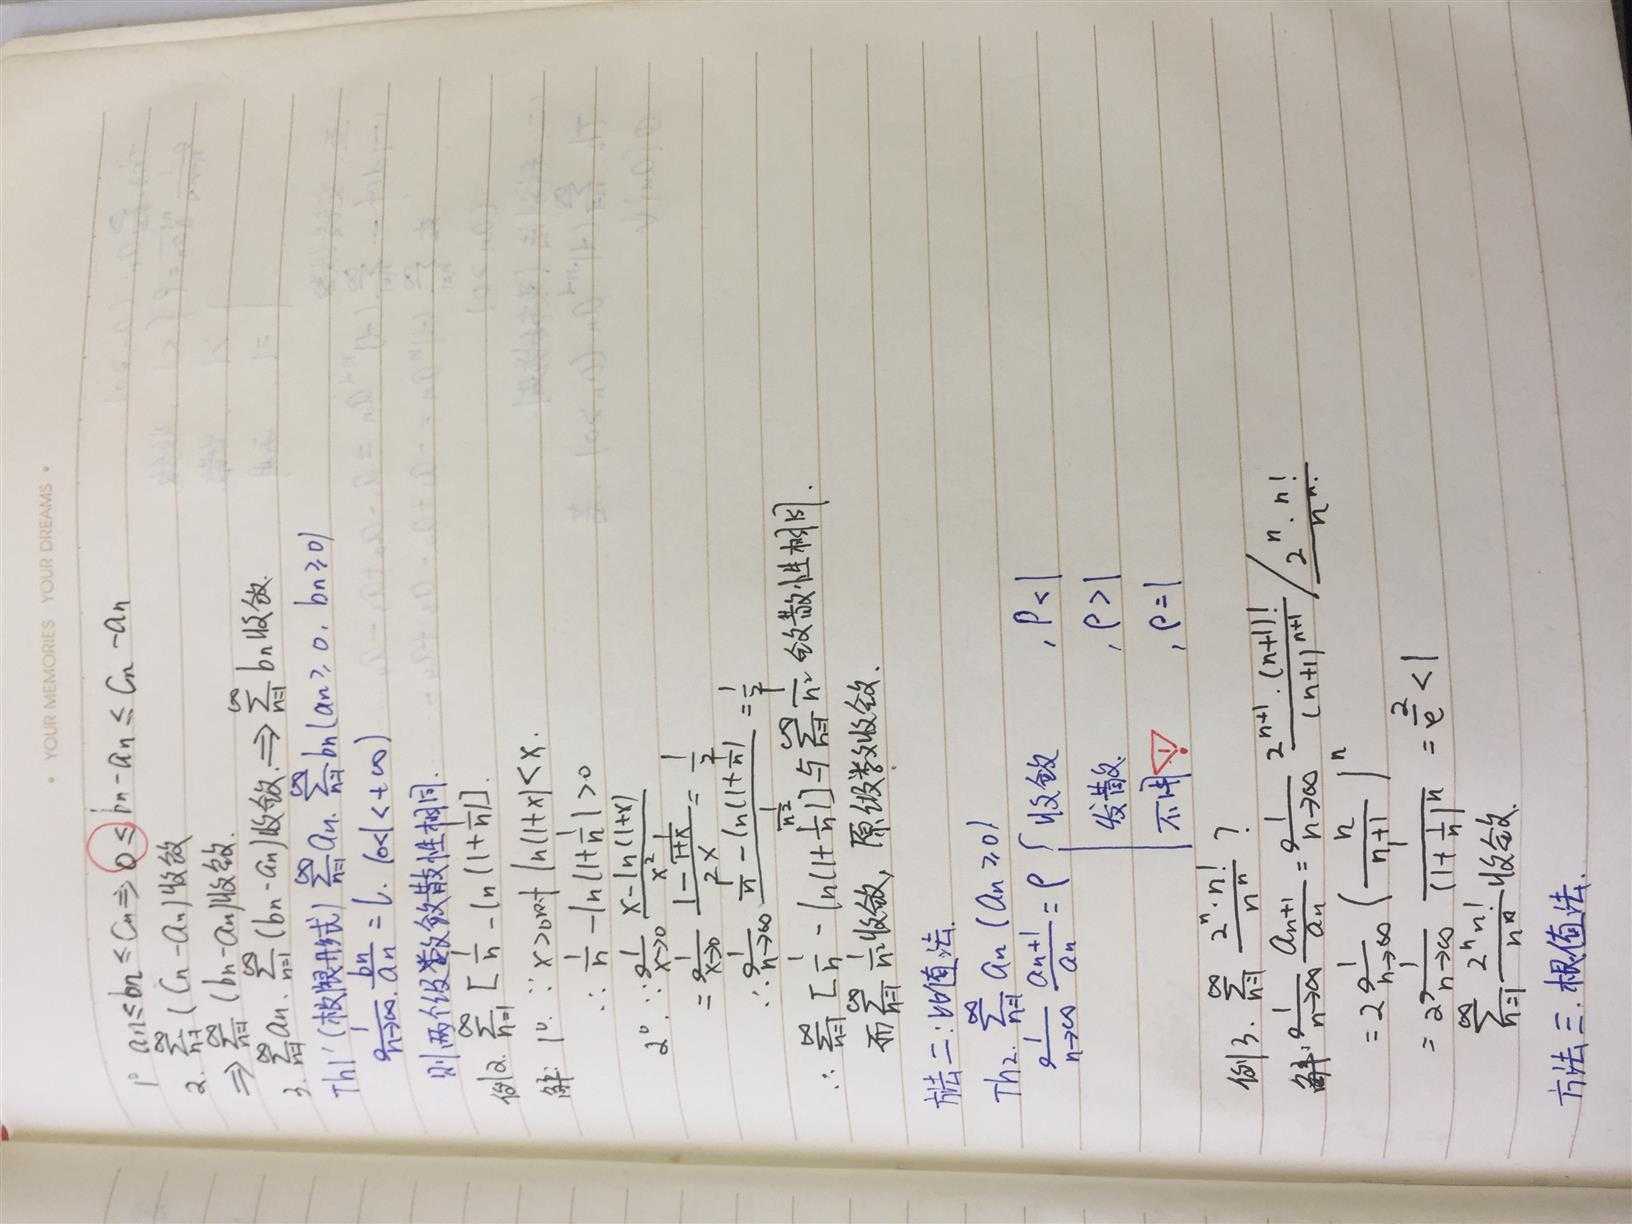 • YOUR MEMORIES YOUR DREAMS •
1° an≤bn≤Cn⇒0≤bn-an≤Cn-an
2. ∑_{n=1}^{∞}(Cn-an)收敛
⇒∑_{n=1}^{∞}(bn-an)收敛.
3. ∑_{n=1}^{∞}an. ∑_{n=1}^{∞}(bn-an)收敛.⇒∑_{n=1}^{∞}bn收敛.
Th1'(极限形式) ∑_{n=1}^{∞}an. ∑_{n=1}^{∞}bn(an≥0. bn≥0)
lim_{n→∞} bn/an = l. (0<l<+∞)
则两个级数敛散性相同.
例2. ∑_{n=1}^{∞}[1/n-ln(1+1/n)].
解: 1°. ∵x>0时 ln(1+x)<x.
∴ 1/n-ln(1+1/n)>0
2° ∵lim_{x→0} (x-ln(1+x))/x²
=lim_{x→0} (1-1/(1+x))/2x = 1/2
∴lim_{n→∞} (1/n-ln(1+1/n))/(1/n²) = 1/2
∴ ∑_{n=1}^{∞}[1/n-ln(1+1/n)]与∑_{n=1}^{∞}1/n² 敛散性相同.
而∑_{n=1}^{∞}1/n²收敛, 原级数收敛.
方法二:比值法.
Th2. ∑_{n=1}^{∞}an (an≥0)
lim_{n→∞} an+1/an = ρ { 收敛 , ρ<1
发散. , ρ>1
不用 ! , ρ=1
例3. ∑_{n=1}^{∞} 2^n·n!/n^n ?
解: lim_{n→∞} an+1/an = lim_{n→∞} 2^{n+1}·(n+1)!/(n+1)^{n+1} / 2^n·n!/n^n.
=2lim_{n→∞}(n/(n+1))^n
=2lim_{n→∞} 1/(1+1/n)^n = 2/e <1
∑_{n=1}^{∞} 2^n n!/n^n 收敛.
方法三.根值法.